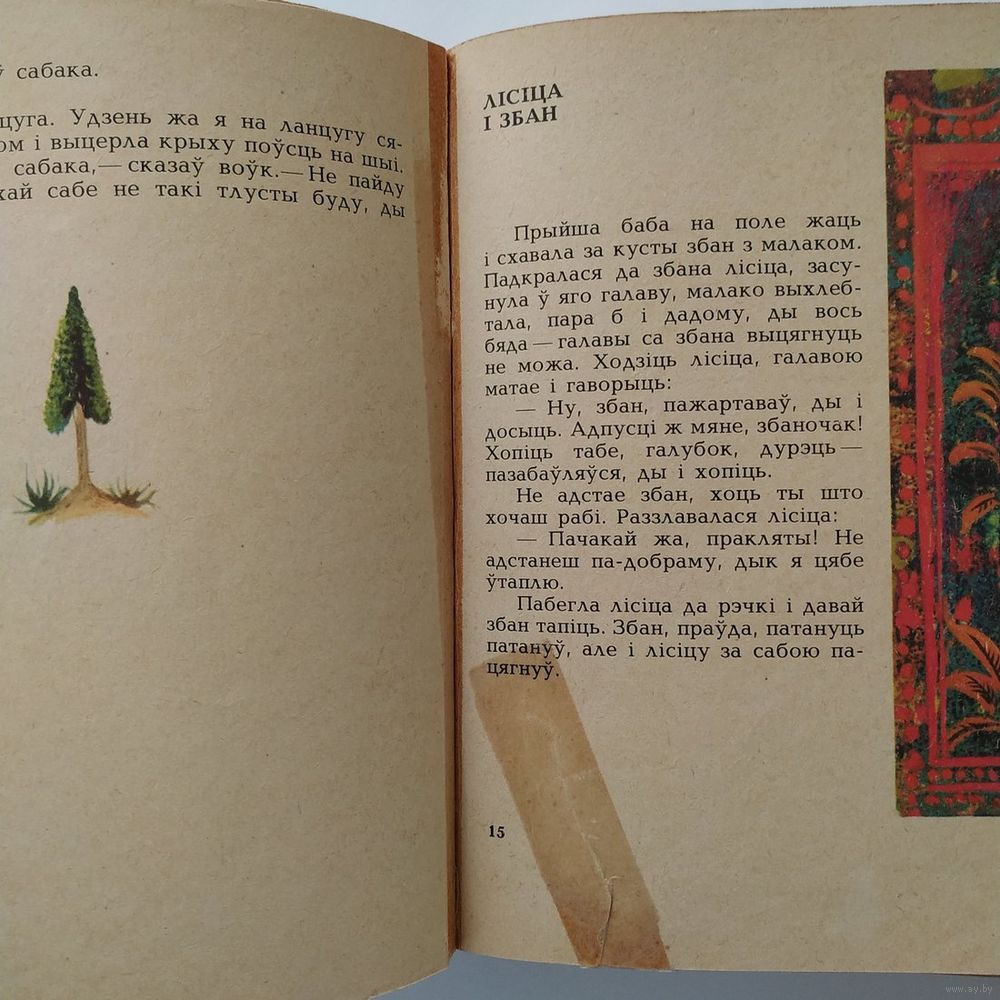 ў сабака.
цуга. Удзень жа я на ланцугу ся-
ом і выцерла крыху поўсць на шыі.
сабака,— сказаў воўк.— Не пайду
хай сабе не такі тлусты буду, ды
ЛІСІЦА
І ЗБАН
Прыйша баба на поле жаць
і схавала за кусты збан з малаком.
Падкралася да збана лісіца, засу-
нула ў яго галаву, малако выхлеб-
тала, пара б і дадому, ды вось
бяда — галавы са збана выцягнуць
не можа. Ходзіць лісіца, галавою
матае і гаворыць:
— Ну, збан, пажартаваў, ды і
досыць. Адпусці ж мяне, збаночак!
Хопіць табе, галубок, дурэць —
пазабаўляўся, ды і хопіць.
Не адстае збан, хоць ты што
хочаш рабі. Раззлавалася лісіца:
— Пачакай жа, пракляты! Не
адстанеш па-добраму, дык я цябе
ўтаплю.
Пабегла лісіца да рэчкі і давай
збан тапіць. Збан, праўда, патануць
патануў, але і лісіцу за сабою па-
цягнуў.
15
www.ay.by